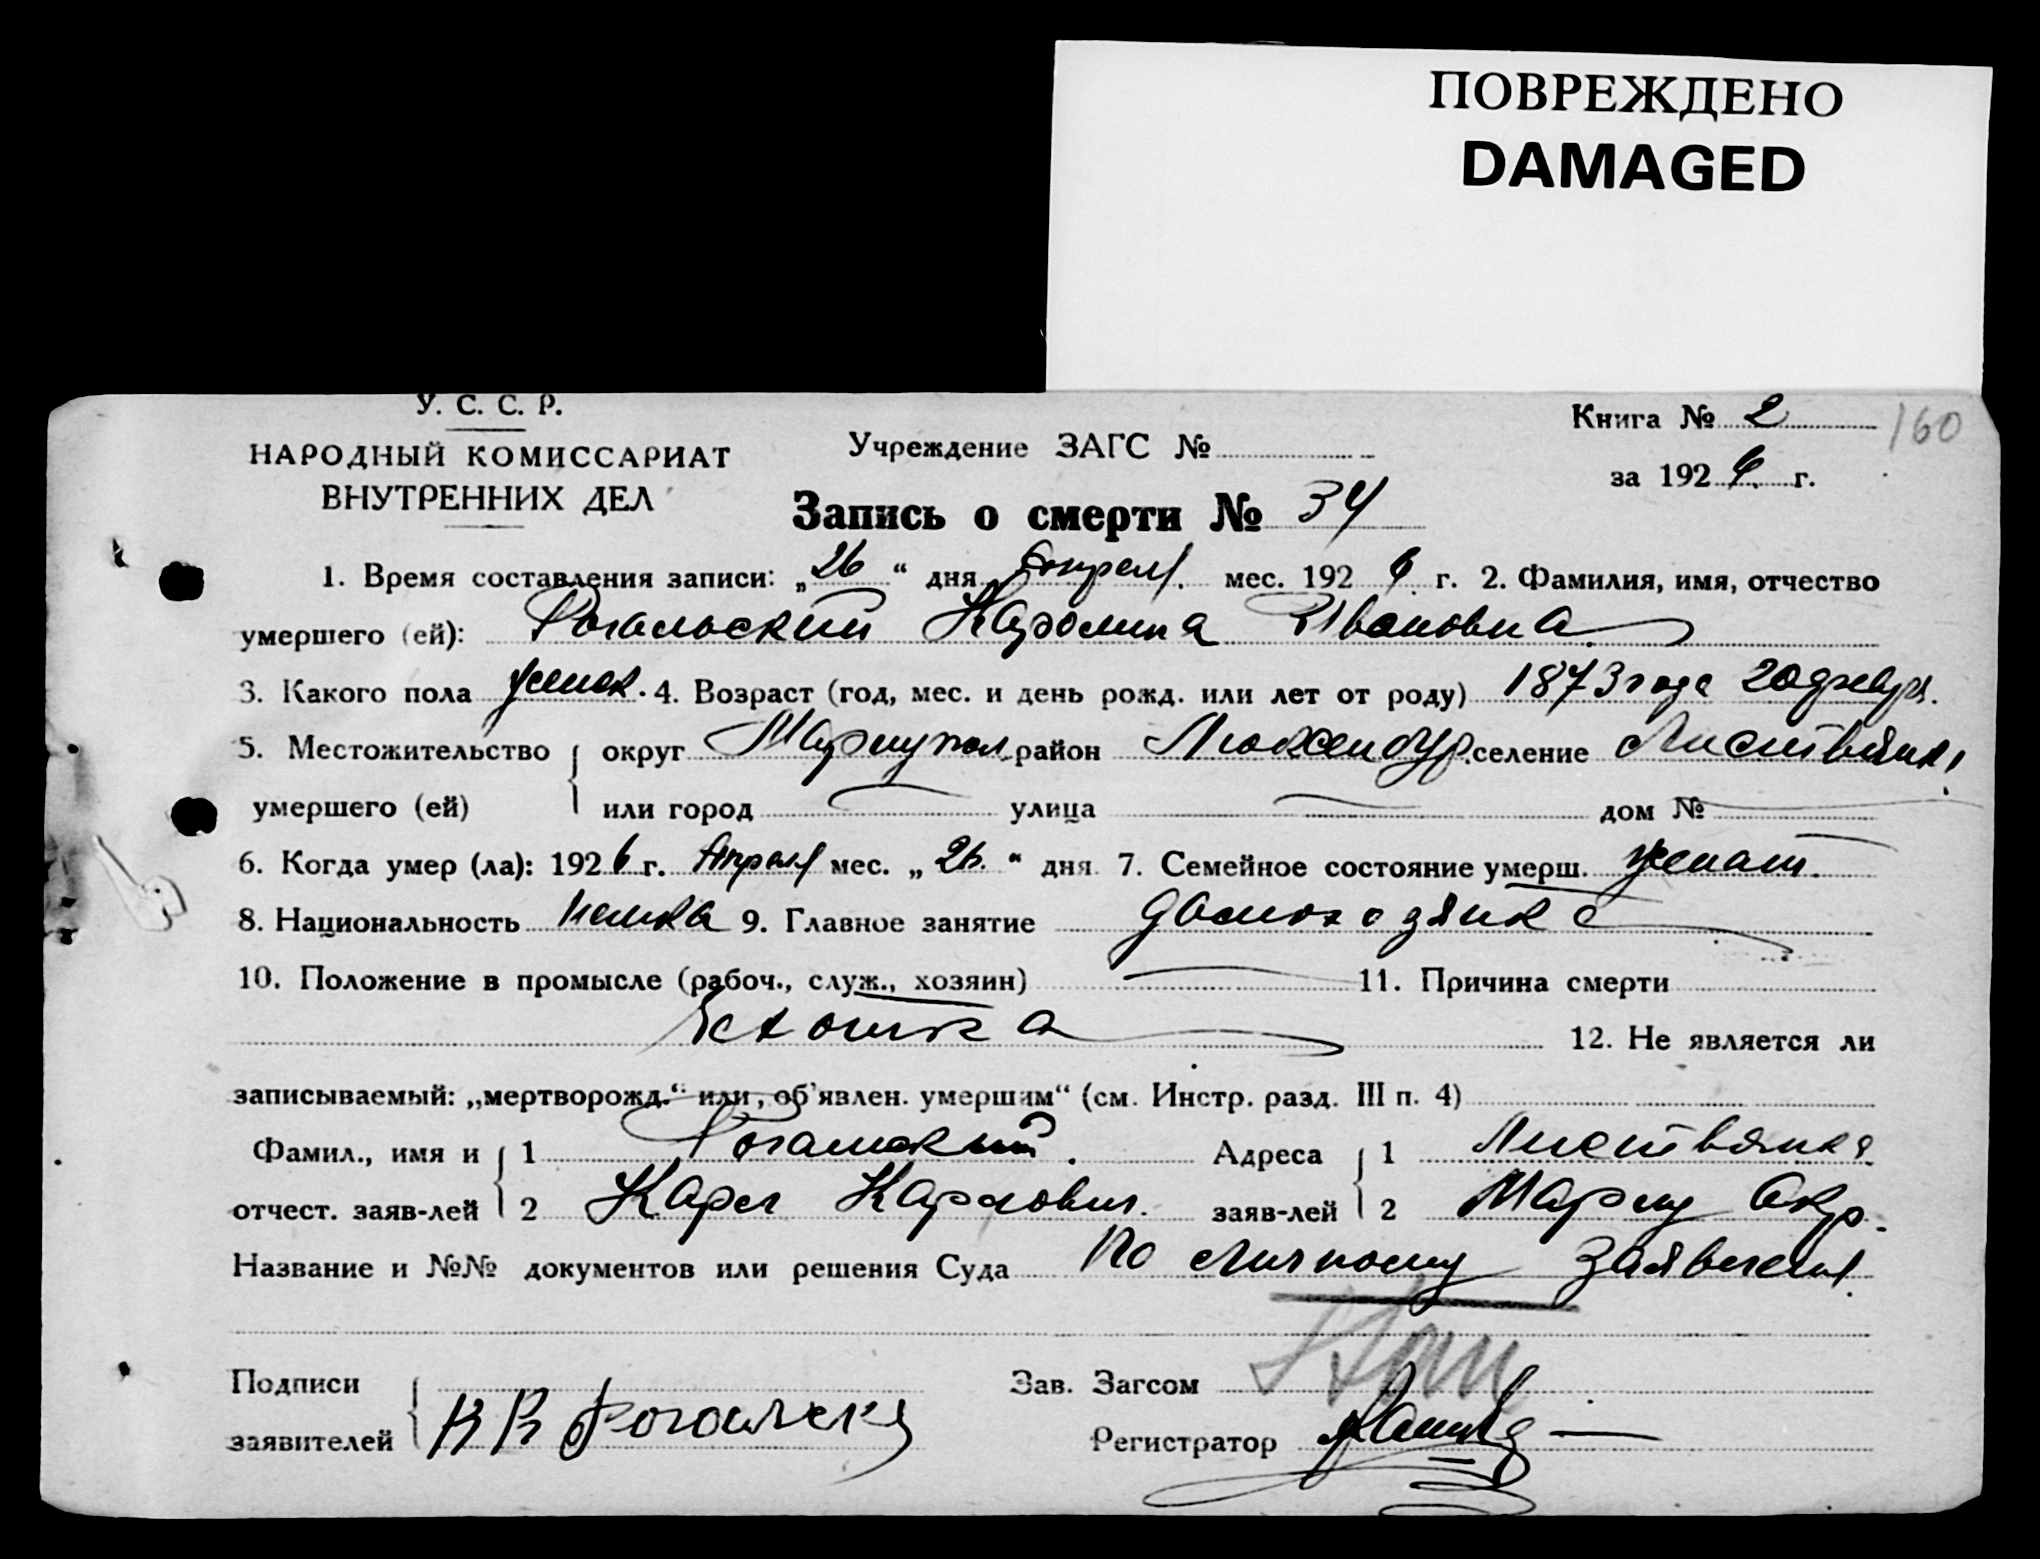 ПОВРЕЖДЕНО
DAMAGED
У. С. С. Р.
НАРОДНЫЙ КОМИССАРИАТ
ВНУТРЕННИХ ДЕЛ
Учреждение ЗАГС №
Книга № 2
160
за 1926 г.
Запись о смерти № 34
1. Время составления записи: „26“ дня Апреля мес. 1926 г. 2. Фамилия, имя, отчество
умершего (ей): Рогальский Каролина Ивановна
3. Какого пола женск. 4. Возраст (год, мес. и день рожд. или лет от роду) 1873 года 20
5. Местожительство округ Мариупол. район Люксембур. селение Листвянка
умершего (ей) или город улица дом №
6. Когда умер (ла): 1926 г. Апреля мес. „26.“ дня 7. Семейное состояние умерш. женат.
8. Национальность немка 9. Главное занятие домохозяйка
10. Положение в промысле (рабоч., служ., хозяин) 11. Причина смерти
Чахотка
12. Не является ли
записываемый: „мертворожд.“ или „об'явлен. умершим“ (см. Инстр. разд. III п. 4)
Фамил., имя и 1 Рогальский. Адреса 1 Листвянка
отчест. заяв-лей 2 Карл Карлович. заяв-лей 2 Мариу Окр.
Название и №№ документов или решения Суда По личному заявлению
Подписи
Зав. Загсом
заявителей
Регистратор